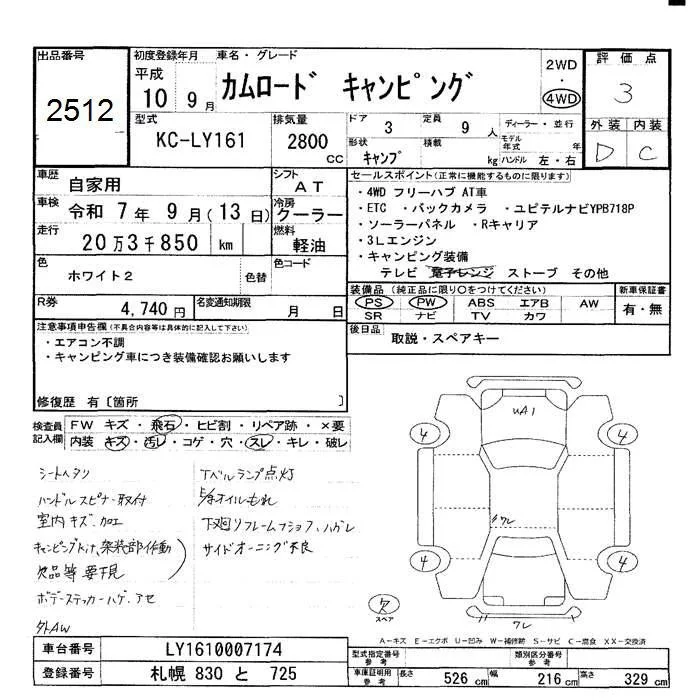 出品番号
2512
初度登録年月
平成
10 9月
車名・グレード
カムロード キャンピング
2WD
・
4WD
評価点
3
型式
KC-LY161
排気量
2800
CC
ドア
3
定員
9人
ディーラー・並行
形状
キャンプ
積載
kg
モデル年式 年
ハンドル 左・右
外装 内装
D C
車歴
自家用
シフト
AT
車検
令和 7年 9月(13日)
冷房
クーラー
走行
20万3千850 km
燃料
軽油
色
ホワイト2
色替
色コード
R券
4,740円
名変通知期限
月 日
セールスポイント(正常に機能するものに限ります)
・4WD フリーハブ AT車
・ETC ・バックカメラ ・ユピテルナビYPB718P
・ソーラーパネル ・Rキャリア
・3Lエンジン
・キャンピング装備
テレビ 電子レンジ ストーブ その他
装備品(純正品に限り○をつけてください)
PS PW ABS エアB AW
SR ナビ TV カワ
新車保証書
有・無
後日品
取説・スペアキー
注意事項申告欄(不具合内容等は具体的に記入して下さい)
・エアコン不調
・キャンピング車につき装備確認お願いします
修復歴 有〔箇所 〕
検査員記入欄
FW キズ・飛石・ヒビ割・リペア跡・×要
内装 キズ・汚レ・コゲ・穴・スレ・キレ・破レ
シートヘタリ
ハンドルスピナー取付
室内キズ、加工
キャンピングkit、架装部作動
欠品等 要下見
ボデーステッカーハゲ、アセ
外AW
Tベルランプ点灯
オイルもれ
下廻りフレームフショク、ハガレ
サイドオーニング不良
UA1
4
4
4
4
ワレ
ワレ
欠
スペア
A-キズ E-エクボ U-凹み W-補修跡 S-サビ C-腐食 XX-交換済
車台番号
LY1610007174
登録番号
札幌 830 と 725
型式指定番号
参考
類別区分番号
参考
車庫証明用
参考
長さ 526cm 幅 216cm 高さ 329cm